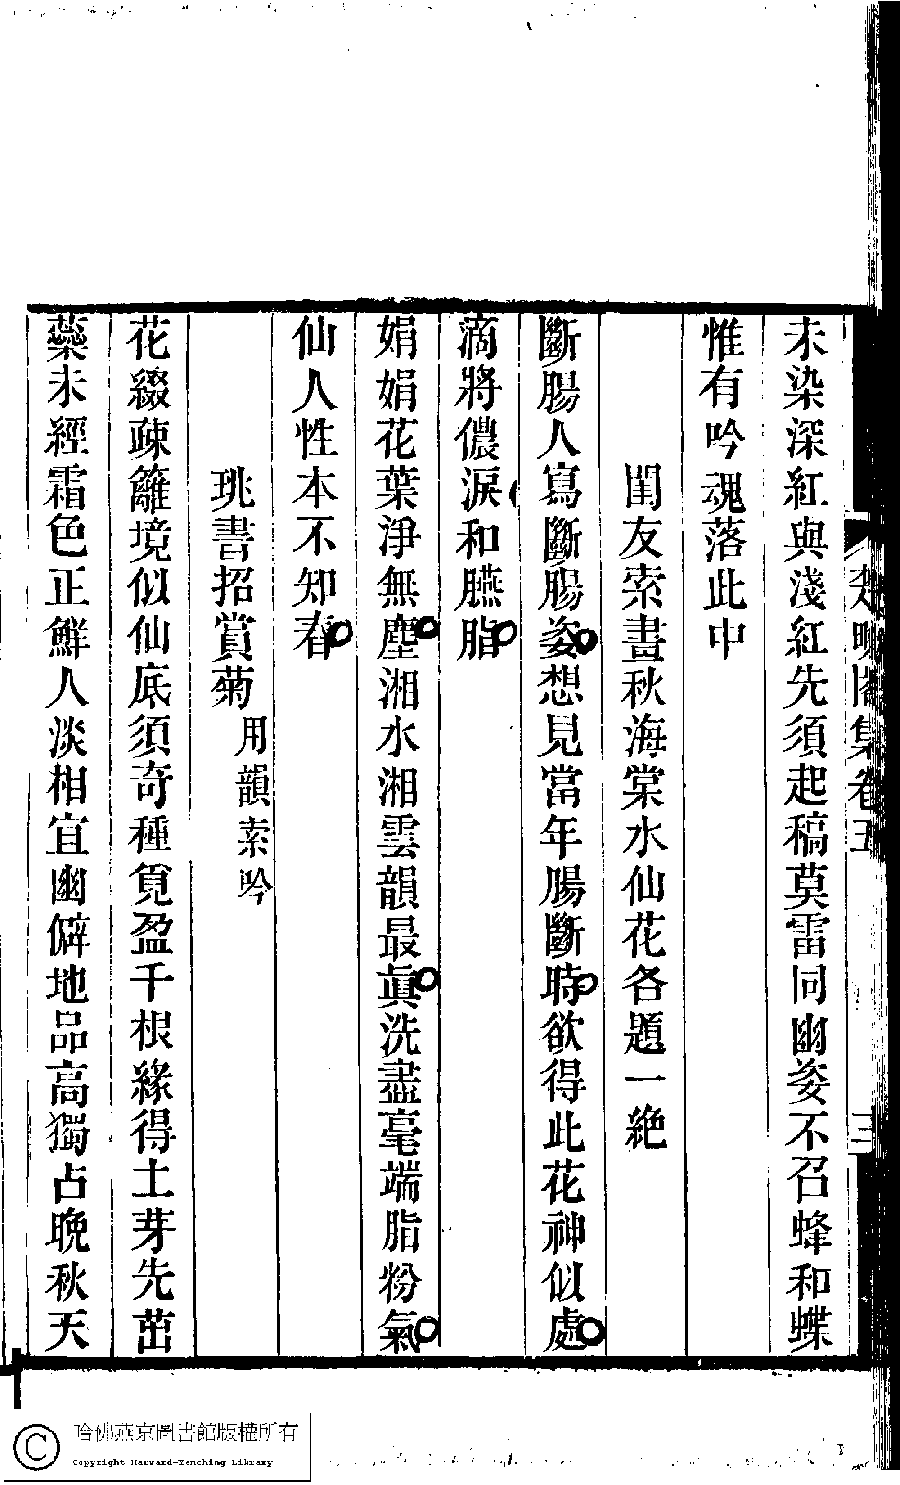 未染深紅與淺紅先須起稿莫雷同幽姿不召蜂和蝶
惟有吟魂落此中
閨友索畫秋海棠水仙花各題一絶
斷腸人寫斷腸姿想見當年腸斷時欲得此花神似處
滴將儂淚和臙脂
娟娟花葉淨無塵湘水湘雲韻最眞洗盡毫端脂粉氣
仙人性本不知春
珧書招賞菊用韻索吟
花綴疎籬境似仙底須奇種覓盈千根緣得土芽先茁
蘂未經霜色正鮮人淡相宜幽僻地品高獨占晚秋天
集卷五
三
哈佛燕京圖書館版權所有
Copyright Harvard-Yenching Library